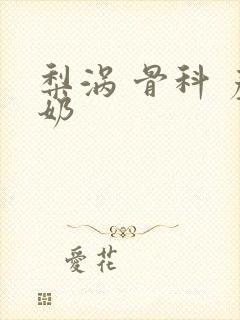 梨涡 骨科
奶
愛花